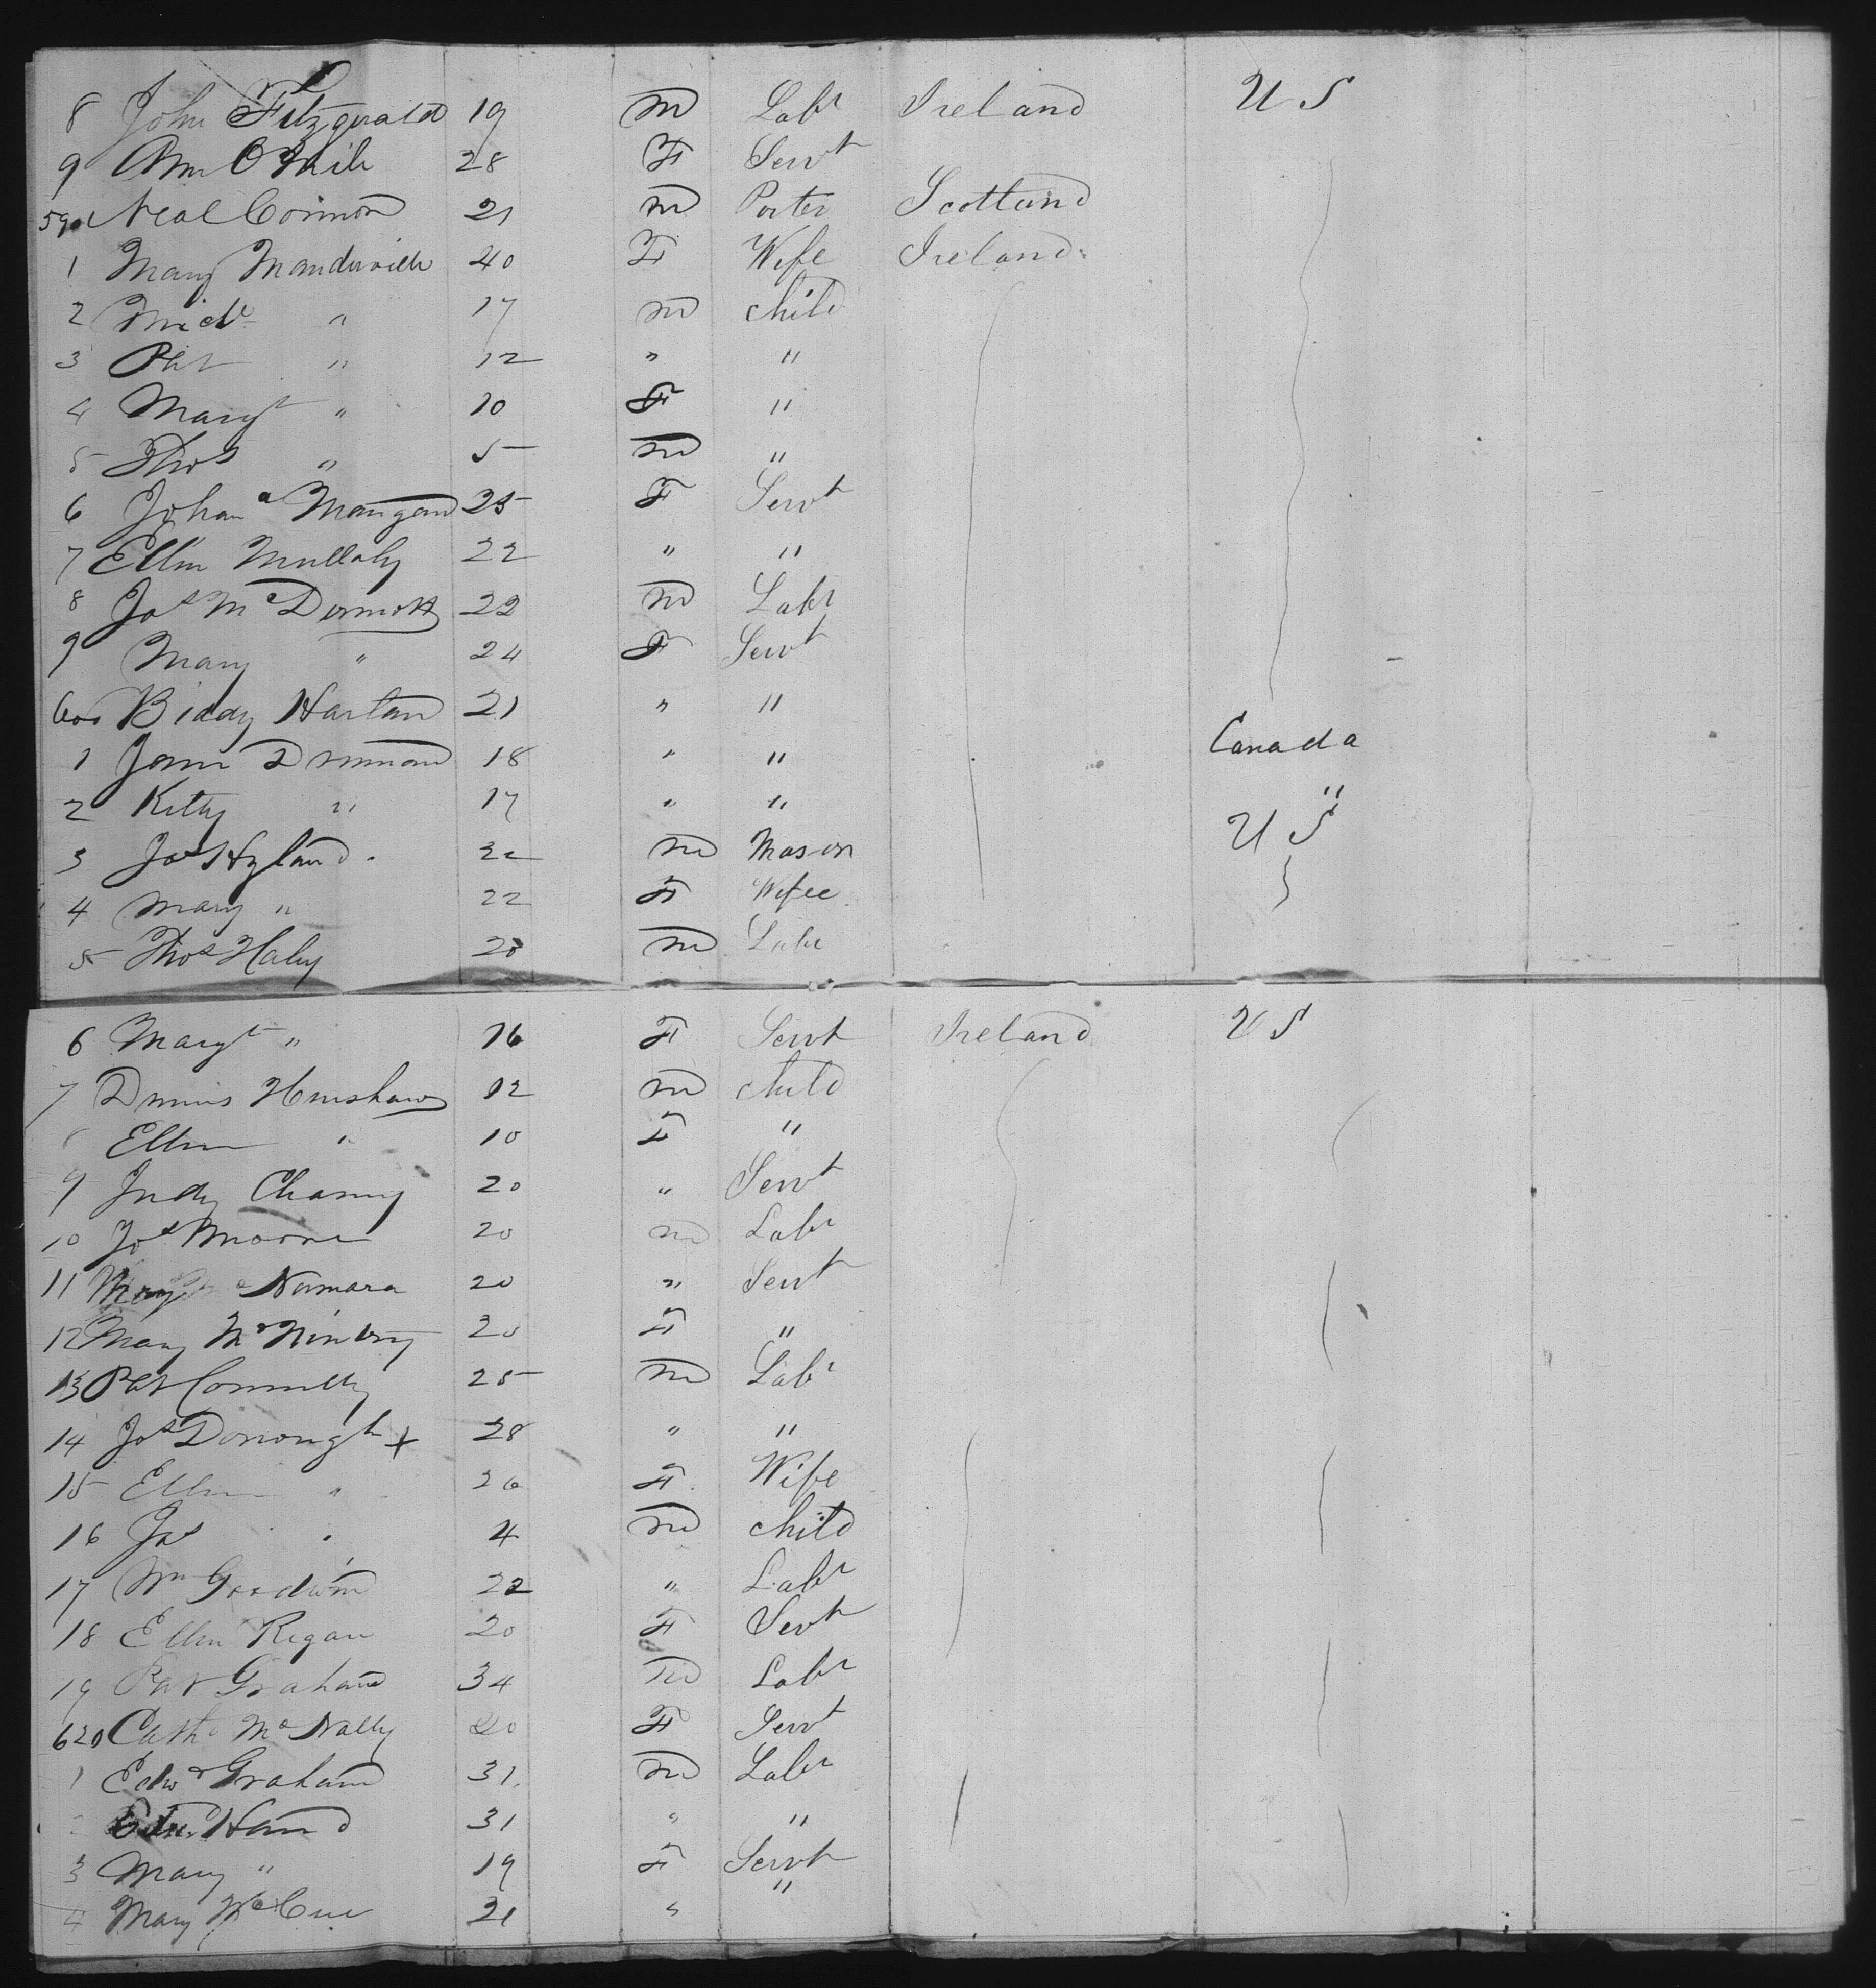 8 John Fitzgerald 19 m Labr Ireland U S
9 Ann O Neile 28 F Servt
590 Neal Connon 21 m Porter Scotland
1 Mary Manderville 40 F Wife Ireland
2 Michl " 17 m child
3 Pat " 12 " "
4 Margt " 10 F "
5 Thos " 5 m "
6 Johana Mangan 25 F Servt
7 Ellen Mullaly 22 " "
8 Jas McDermott 22 m Labr
9 Mary " 24 F Servt
600 Biddy Hartan 21 " "
1 Jane 18 " " Canada
2 Kitty " 17 " " "
3 Jas Hyland 32 m Mason U S
4 Mary " 22 F Wife
5 Thos Haley 28 m Labr
6 Margt " 16 F Servt Ireland U S
7 Dennis Henshaw 12 m child
Ellen " 10 F "
9 Judy 20 " Servt
10 Jos Moore 20 m Labr
11 Namara 20 " Servt
12 Mary 20 F "
13 Pat Connelly 25 m Labr
14 Jos Donough + 28 " "
15 Ellen " 26 F Wife
16 Jas " 4 m child
17 Wm Goodwin 22 " Labr
18 Ellen Regan 20 F Servt
19 Pat Graham 34 m Labr
620 Cathe McNally 20 F Servt
1 Edwd Graham 31 m Labr
Hand 31 " "
3 Mary " 19 F Servt
4 Mary McCue 21 " "